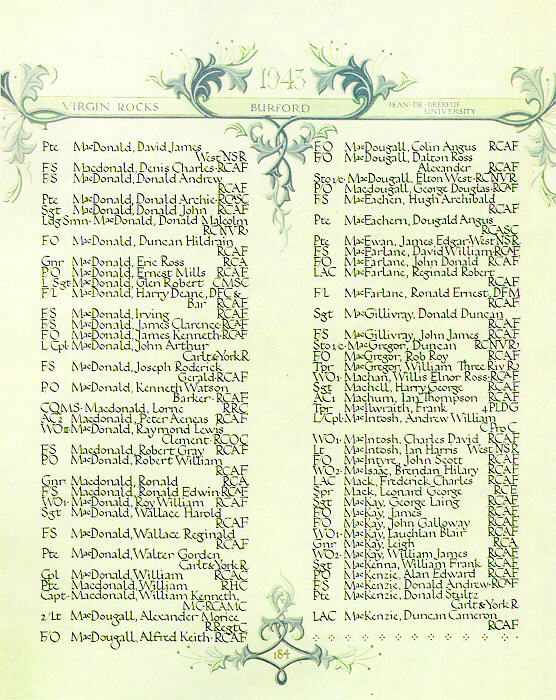 1943
VIRGIN ROCKS
BURFORD
JEAN-DE-BRÉBEUF
UNIVERSITY
Pte MacDonald, David James
West NSR
FS Macdonald, Denis Charles·RCAF
FS MacDonald, Donald Andrew
RCAF
Pte MacDonald, Donald Archie·RCASC
Sgt MacDonald, Donald John RCAF
Ldg Smn· MacDonald, Donald Malcolm
RCNVR
FO MacDonald, Duncan Hildrain
RCAF
Gnr MacDonald, Eric Ross RCA
PO MacDonald, Ernest Mills RCAF
L/Sgt MacDonald, Glen Robert CMSC
F/L MacDonald, Harry Deane, DFC &
Bar RCAF
FS MacDonald, Irving RCAF
FS MacDonald, James Clarence·RCAF
FO MacDonald, James Kenneth·RCAF
L/Cpl· MacDonald, John Arthur
Carlt&York R
FS MacDonald, Joseph Roderick
Gerald·RCAF
PO MacDonald, Kenneth Watson
Barker·RCAF
CQMS· Macdonald, Lorne RRC
AC2 Macdonald, Peter Aeneas RCAF
WOII·MacDonald, Raymond Lewis
Clement·RCOC
FS Macdonald, Robert Gray RCAF
PO MacDonald, Robert William
RCAF
Gnr Macdonald, Ronald RCA
FS Macdonald, Ronald Edwin·RCAF
WO1· MacDonald, Roy William RCAF
Sgt MacDonald, Wallace Harold
RCAF
FS MacDonald, Wallace Reginald
RCAF
Pte MacDonald, Walter Gorden
Carlt&York R
Cpl MacDonald, William RCAC
Pte Macdonald, William RHC
Capt· MacDonald, William Kenneth,
MC·RCAMC
2/Lt MacDougall, Alexander Morice
RRegtC
F/O MacDougall, Alfred Keith·RCAF
FO MacDougall, Colin Angus RCAF
FO MacDougall, Dalton Ross
Alexander RCAF
Sto1/c· MacDougall, Elton West·RCNVR
PO Macdougall, George Douglas·RCAF
FS MacEachen, Hugh Archibald
RCAF
Pte MacEachern, Dougald Angus
RCASC
Pte MacEwan, James Edgar·West NSR
FS MacFarlane, David William RCAF
FO MacFarlane, John Donald RCAF
LAC MacFarlane, Reginald Robert
RCAF
F/L MacFarlane, Ronald Ernest, DFM
RCAF
Sgt MacGillivray, Donald Duncan
RCAF
FS MacGillivray, John James RCAF
Sto1/c· MacGregor, Duncan RCNVR
FO MacGregor, Rob Roy RCAF
Tpr MacGregor, William Three Riv R
WO1· Machan, Willis Elnor Ross·RCAF
Sgt Machell, Harry George RCAF
AC1 Machum, Ian Thompson RCAF
Tpr MacIlwraith, Frank 4 PLDG
L/Cpl· MacIntosh, Andrew William
CProC
WO1· MacIntosh, Charles David RCAF
Lt MacIntosh, Ian Harris West NSR
FO MacIntyre, John Scott RCAF
WO2· MacIsaac, Brendan Hilary RCAF
LAC Mack, Frederick Charles RCAF
Spr Mack, Leonard George RCE
Sgt MacKay, George Laing RCAF
FO MacKay, James RCAF
FO MacKay, John Galloway RCAF
WO1· MacKay, Lauchlan Blair RCAF
Gnr MacKay, Leigh RCA
WO2· MacKay, William James RCAF
Sgt MacKenna, William Frank RCAF
PO MacKenzie, Alan Edward RCAF
FS MacKenzie, Donald Andrew·RCAF
Pte MacKenzie, Donald Stultz
Carlt&York R
LAC MacKenzie, Duncan Cameron
RCAF
184